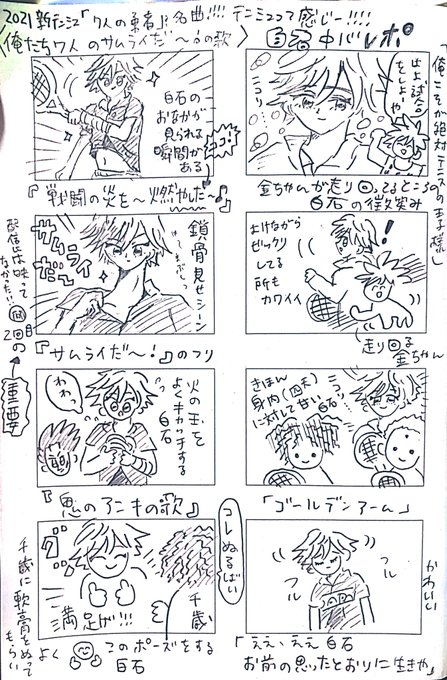 2021新テニミュ「7人の勇者」は名曲!!!! テニミュって感じー!!!!
〈俺たち7人のサムライだ〜♪の歌〉
白石中心レポ
白石の
おなかが
見られる
瞬間が
ある
ココ!
『戦闘の炎を〜燃やした〜♪』
サムライ
だ〜
鎖骨見せシーン
『サムライだ〜!』のフリ
配信には映って
なかった…
2回目の
重要
わわっ
火の玉を
よくキャッチする
白石
『鬼のアニキの歌』
グッ
満足げ!!!
千歳
よく
このポーズをする
白石
千歳に軟膏をぬって
もらい
コレぬるばい
俺こそが絶対テニスの王子様」
はよ試合
をしよや
ニコリ
金ちゃんが走り回ってるところの
白石の微笑み
!
よけながら
ビックリ
してる
所も
カワイイ
走り回る
金ちゃん
きほん
身内(四天)
に対して甘い
白石…
ニコッ
「ゴールデンアーム」
フル
フル
かわいい
「ええ、ええ白石
お前の思ったとおりに生きや」